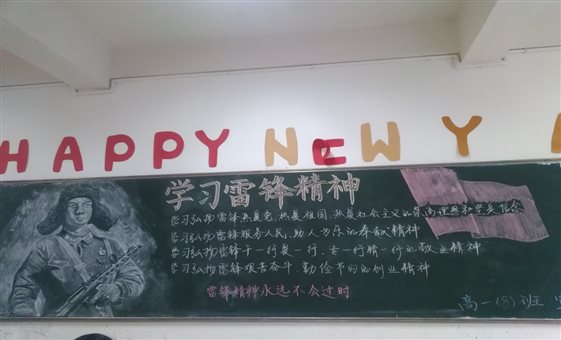 HAPPY NEW Y
学习雷锋精神
学习弘扬雷锋热爱党、热爱祖国、热爱社会主义的崇高理想和坚定信念
学习弘扬雷锋服务人民、助人为乐的奉献精神
学习弘扬雷锋干一行爱一行、专一行精一行的敬业精神
学习弘扬雷锋艰苦奋斗、勤俭节约的创业精神
雷锋精神永远不会过时
高一(8)班